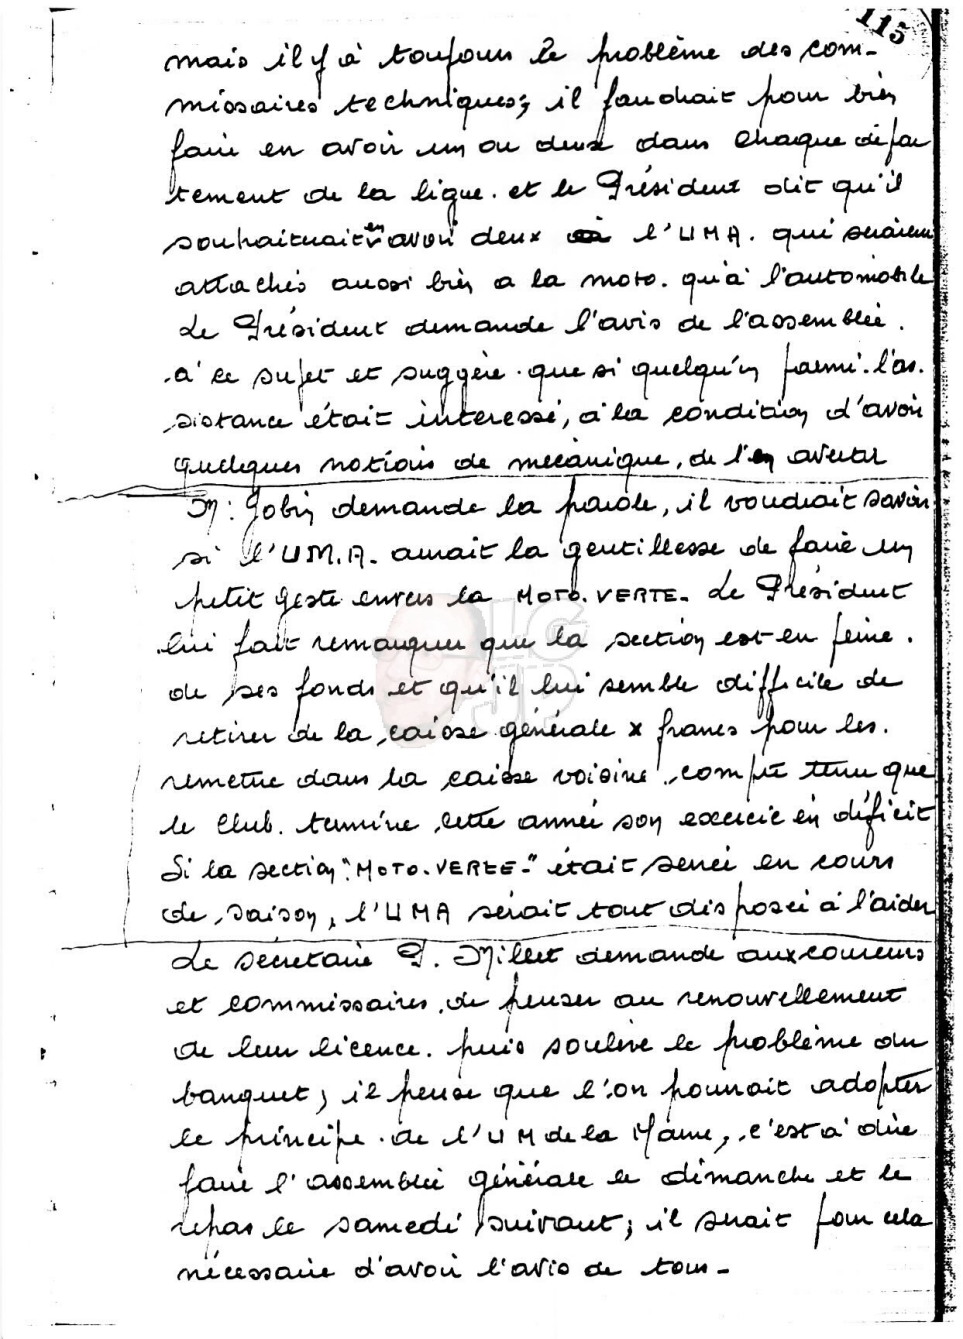 115
mais il y à toujours le problème des com-
missaires techniques; il faudrait pour bien
faire en avoir un ou deux dans chaque dépar
tement de la ligue. et le Président dit qu'il
souhaiterait en avoir deux à l'UMA. qui seraient
attachés aussi bien a la moto. qu'à l'automobile
Le Président demande l'avis de l'assemblée.
à ce sujet et suggère. que si quelqu'un parmi. l'as.
sistance était interessé, à la condition d'avoir
quelques notions de mécanique, de l'en avertir
M: Gobin demande la parole, il voudrait savoir
si l'UM.A. aurait la gentillesse de faire un
petit geste envers la MOTO.VERTE. Le Président
lui fait remarquer que la section est en peine.
de ses fonds et qu'il lui semble difficile de
retirer de la caisse générale x francs pour les.
remettre dans la caisse voisine, compte tenu que
le Club. termine cette année son exercice en déficit
Si la section "MOTO.VERTE-" était serrée en cours
de saison, l'UMA serait tout disposée à l'aider
Le secrétaire P. Millet demande aux coureurs
et commissaires de penser au renouvellement
de leur licence. puis soulève le problème du
banquet; il pense que l'on pourrait adopter
le principe. de l'UM de la Marne, c'est à dire
faire l'assemblée générale le dimanche et le
repas le samedi suivant; il serait pour cela
nécessaire d'avoir l'avis de tous-
LG
JP